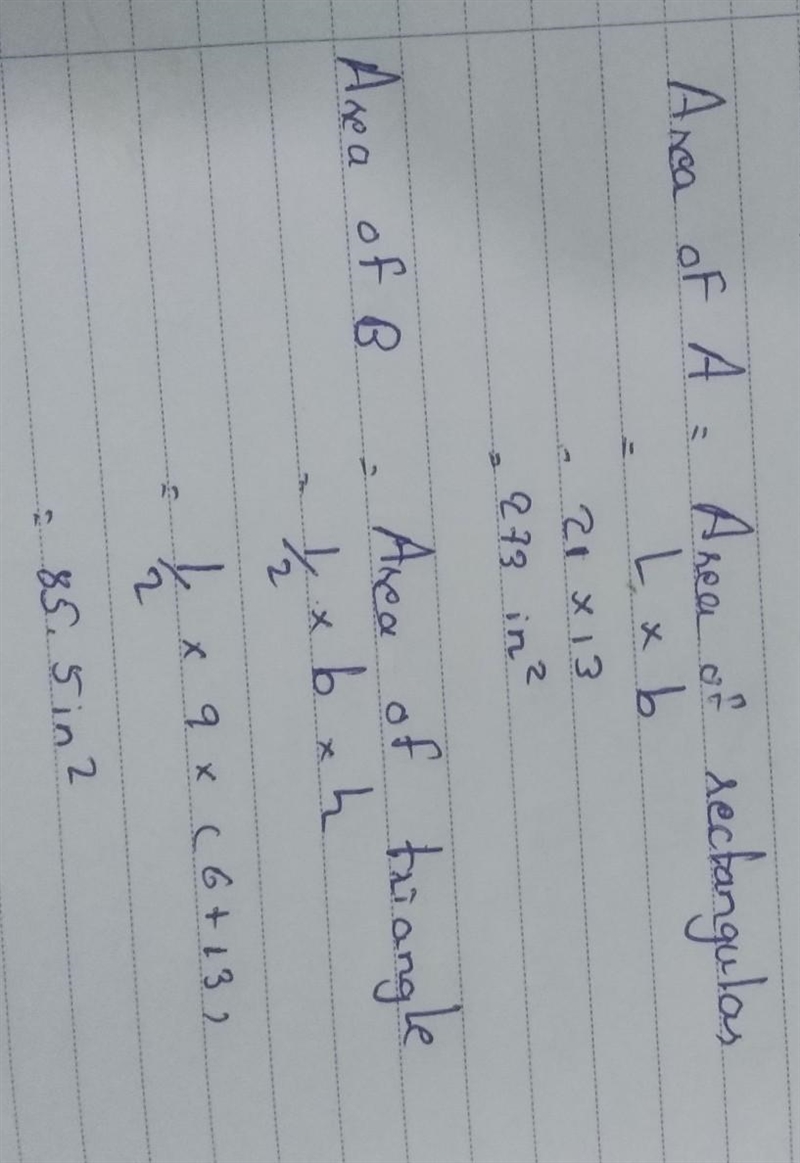 Area of A = Area of rectangular
= L × b
= 21 × 13
= 273 in²
Area of B = Area of triangle
= 1/2 × b × h
= 1/2 × 9 × (6+13)
= 85.5in²